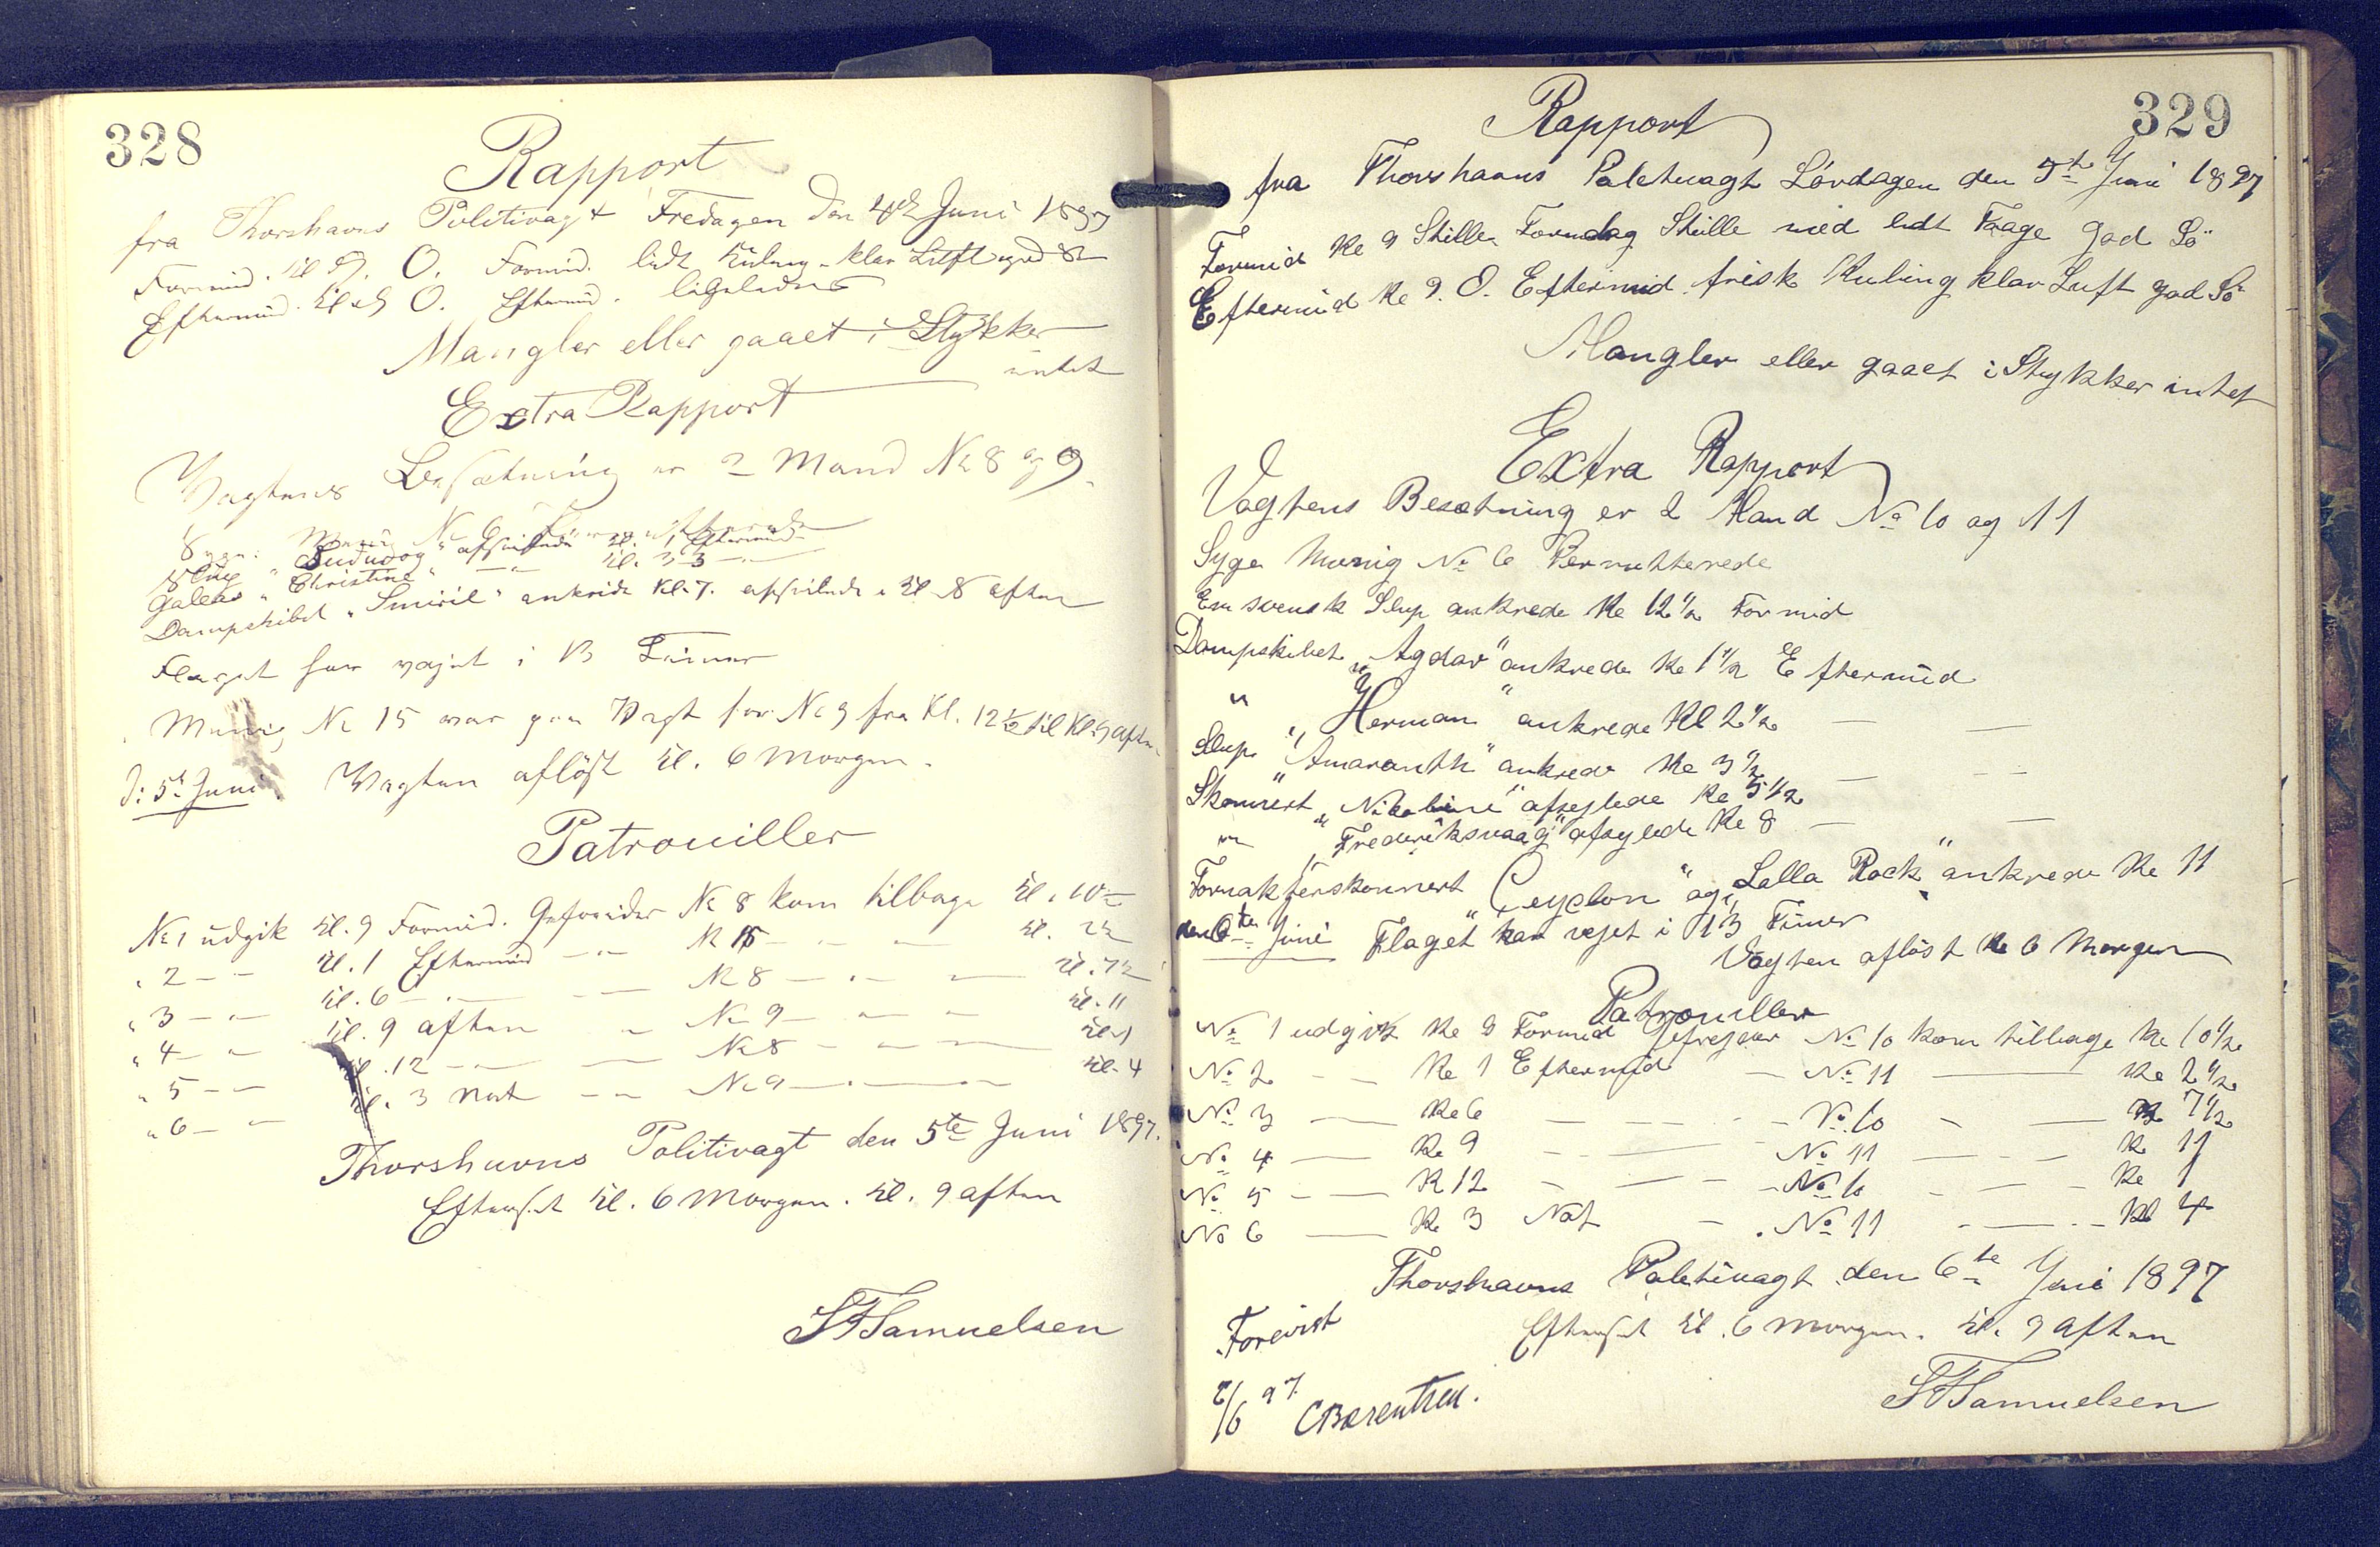 328
Rapport
fra Thorshavns Politivagt Fredagen den 4de Juni 1897
Formid. Kl 9. O. Formid. lidt Kuling - klar Luft god Sø
Eftermid. Kl 9 O. Eftermid. ligeledes
Mangler eller gaaet i Stykker
intet
Extra Rapport
Vagtens Besætning er 2 Mand No 8 og 9.
Syge: Menig No 6
Slup " " afseilede Kl. 1 Eftermid
Galeas " Christine " — " — Kl. 3
Dampskibet " Smiril " ankrede Kl. 7. afseilede Kl 8 aften
Flaget har vajet i 13 Timer
Menig No 15 var paa Vagt for No 9 fra Kl. 12½ til Kl 9 aften
D: 5te Juni. Vagten afløst Kl. 6 Morgen.
Patrouiller
No 1 udgik Kl. 9 Formid. Gefreider No 8 kom tilbage Kl. 10½
" 2 — " Kl. 1 Eftermid — " — No 15 — " — Kl. 2½
" 3 — " — Kl. 6 — " — No 8 — " — Kl. 7½
" 4 — " Kl. 9 aften " No 9 — " — Kl. 11
" 5 — " — Kl. 12 — " — No 8 — " — Kl. 1
" 6 — " — Kl. 3 Nat — " No 9 — " — Kl. 4
Thorshavns Politivagt den 5te Juni 1897.
Efterset Kl. 6 Morgen. Kl. 9 aften
SFSamuelsen
329
Rapport
fra Thorshavns Poletivagt Lördagen den 5te Juni 1897
Formid Kl 9 Stille. Formdag Stille med lidt Taage god Sö
Eftermid Kl 9. O. Eftermid. frisk Kuling klar Luft god Sö
Mangler eller gaaet i Stykker intet
Extra Rapport
Vagtens Besætning er 2 Mand No 10 og 11
Syge Menig No 6 Permitterede
En svensk Slup ankrede Kl 12½ Formid
Dampskibet " Agdar " ankrede Kl 1½ Eftermid
" " Herman " ankrede Kl 2½ — —
Slup " Amaranth " ankrede Kl 3½ — —
Skonnert " Nikoline " afsejlede Kl 5½
" " Frederiksvaag " afsejlede Kl 8 — —
Tormakterskonnert " Ceyclon " og " Lalla Rock " ankrede Kl 11
den 6te Juni Flaget har vejet i 13 Timer
Vagten aflöst Kl 6 Morgen
Patrouiller
No 1 udgik Kl 9 Formid Gefrejder No 10 kom tilbage Kl 10½
No 2 — — Kl 1 Eftermid — No 11 — Kl 2½
No 3 — Kl 6 — — No 10 — — Kl 7½
No 4 — Kl 9 — — No 11 — — Kl 11
No 5 — — Kl 12 — — No 10 — — Kl 1
No 6 — Kl 3 Nat — No 11 — — Kl 4
Thorshavns Poletivagt den 6te Juni 1897
Efterset Kl. 6 Morgen. Kl. 9 aften
Forevist
SFSamuelsen
/6 97 CBærentsen.